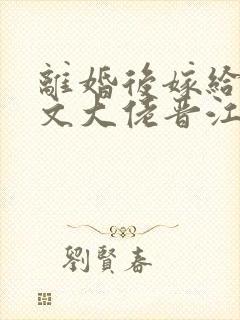 離婚後嫁給
文大佬晋江
劉賢春